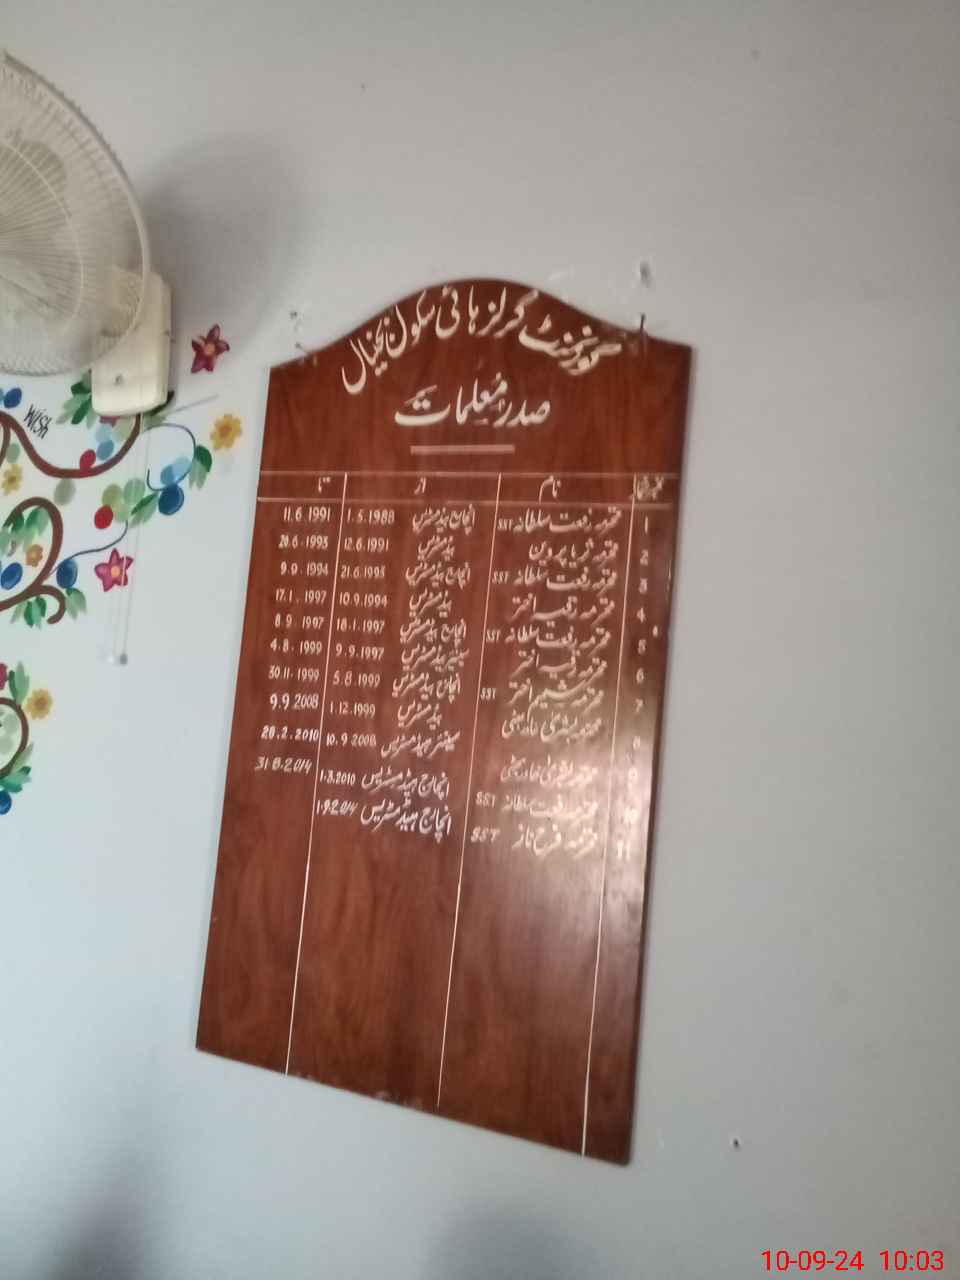 گورنمنٹ گرلز ہائی سکول نجیال
صدر معلمات
نمبر شمار نام از تا
1 محترمہ رفعت سلطانہ SST انچارج ہیڈمسٹریس 1.5.1988 11.6.1991
2 محترمہ ثریا پروین ہیڈمسٹریس 12.6.1991 20.6.1993
3 محترمہ رفعت سلطانہ SST انچارج ہیڈمسٹریس 21.6.1993 9.9.1994
4 محترمہ رقیہ اختر ہیڈمسٹریس 10.9.1994 17.1.1997
5 محترمہ رفعت سلطانہ SST انچارج ہیڈمسٹریس 18.1.1997 8.9.1997
6 محترمہ رقیہ اختر سینئر ہیڈمسٹریس 9.9.1997 4.8.1999
7 محترمہ شمیم اختر SST انچارج ہیڈمسٹریس 5.8.1999 30.11.1999
8 محترمہ بشریٰ ہیڈمسٹریس 1.12.1999 9.9.2008
9 محترمہ بشریٰ سینئر ہیڈمسٹریس 10.9.2008 28.2.2010
10 محترمہ رفعت سلطانہ SST انچارج ہیڈمسٹریس 1.3.2010 31.8.2014
11 محترمہ فرح ناز SST انچارج ہیڈمسٹریس 1.9.2014
Wish
10-09-24 10:03